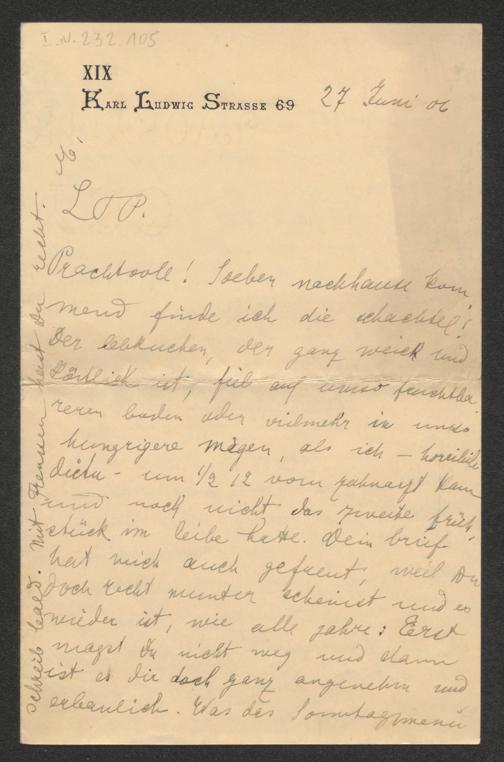 I.N. 232.105
XIX
Karl Ludwig Strasse 69
27 Juni 06
L P.
Prachtvoll! Soeben nachhause kom
mend finde ich die schachtel!
Der lebkuchen, der ganz weich und
köstlich ist, fiel auf umso fruchtba
reren boden oder vielmehr in umso
hungrigere mägen, als ich – horribile
dictu – um 1/2 12 vom zahnarzt kam
und noch nicht das zweite früh,
stück im leibe hatte. Dein brief
hat mich auch gefreut, weil Du
doch recht munter scheinst und es
wieder ist, wie alle jahre: Erst
magst Du nicht weg und dann
ist es dir doch ganz angenehm und
erbaulich. Was das Sonntagsmenü
schreib bald. Mit Frenssen hast Du recht.